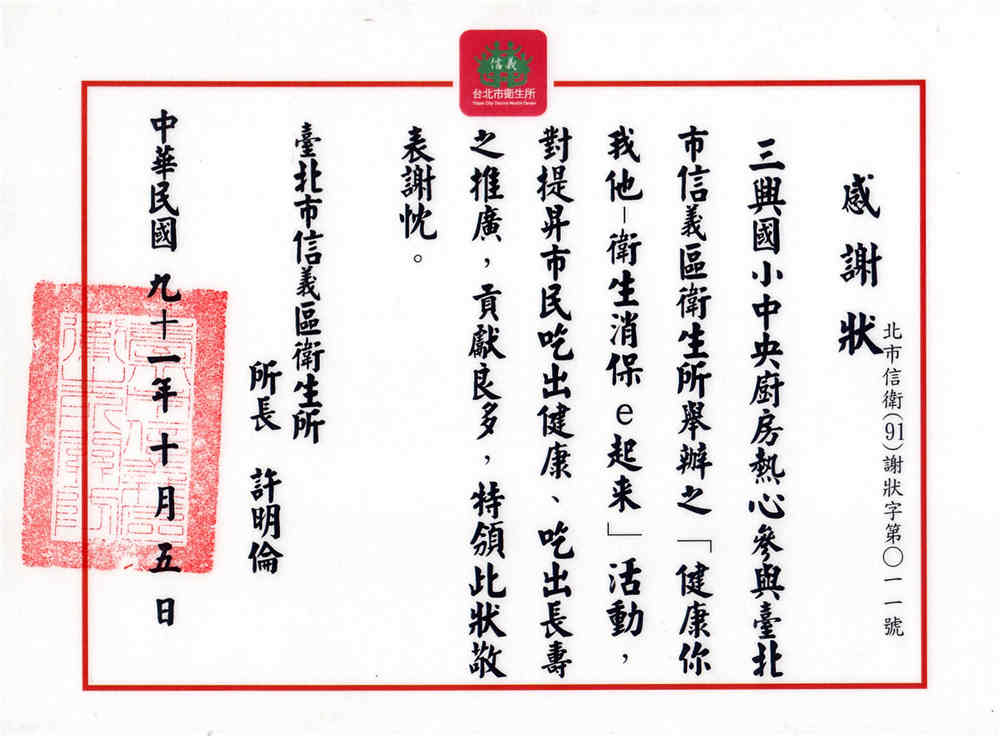 信義
台北市衛生所
Taipei City District Health Center
感謝狀
北市信衛(91)謝狀字第○一一號
三興國小中央廚房熱心參與臺北
市信義區衛生所舉辦之「健康你
我他－衛生消保e起來」活動，
對提昇市民吃出健康、吃出長壽
之推廣，貢獻良多，特頒此狀敬
表謝忱。
臺北市信義區衛生所
所長 許明倫
中華民國九十一年十月五日